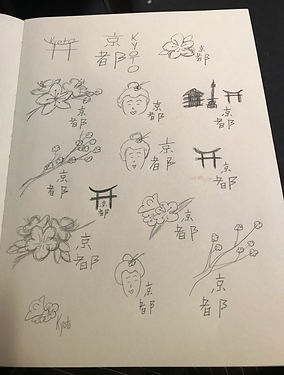 Kyoto
京都
KYOTO
京都
京都
京都
京都
京都
京都
京都
京都
京都
京都
京都
京都
Kyoto